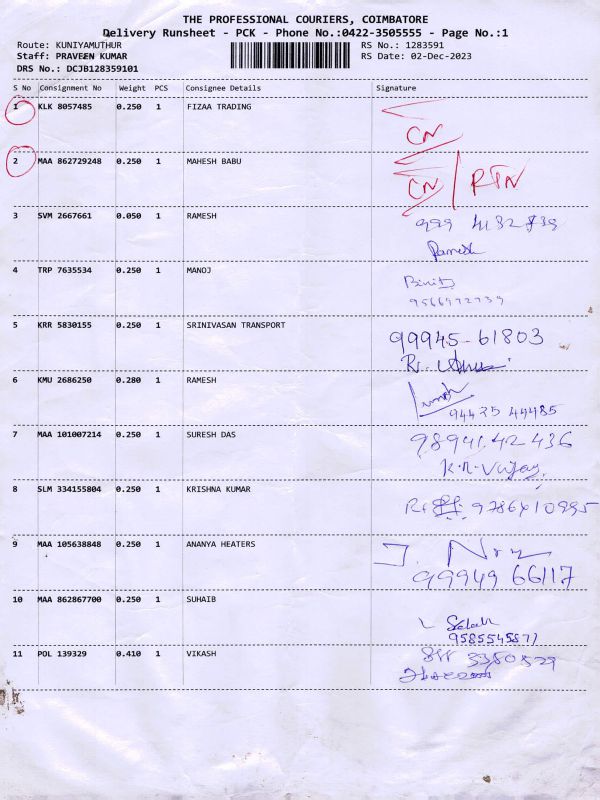 THE PROFESSIONAL COURIERS, COIMBATORE
Delivery Runsheet - PCK - Phone No.:0422-3505555 - Page No.:1
Route: KUNIYAMUTHUR RS No.: 1283591
Staff: PRAVEEN KUMAR RS Date: 02-Dec-2023
DRS No.: DCJB128359101
S No Consignment No Weight PCS Consignee Details Signature
1 KLK 8057485 0.250 1 FIZAA TRADING
CN
2 MAA 862729248 0.250 1 MAHESH BABU
CN / RTN
3 SVM 2667661 0.050 1 RAMESH
Ramesh
4 TRP 7635534 0.250 1 MANOJ
5 KRR 5830155 0.250 1 SRINIVASAN TRANSPORT
99945-61803
6 KMU 2686250 0.280 1 RAMESH
94435 44485
7 MAA 101007214 0.250 1 SURESH DAS
9894142436
K.R. Vijay
8 SLM 334155804 0.250 1 KRISHNA KUMAR
9 MAA 105638848 0.250 1 ANANYA HEATERS
99949 66117
10 MAA 862867700 0.250 1 SUHAIB
11 POL 139329 0.410 1 VIKASH